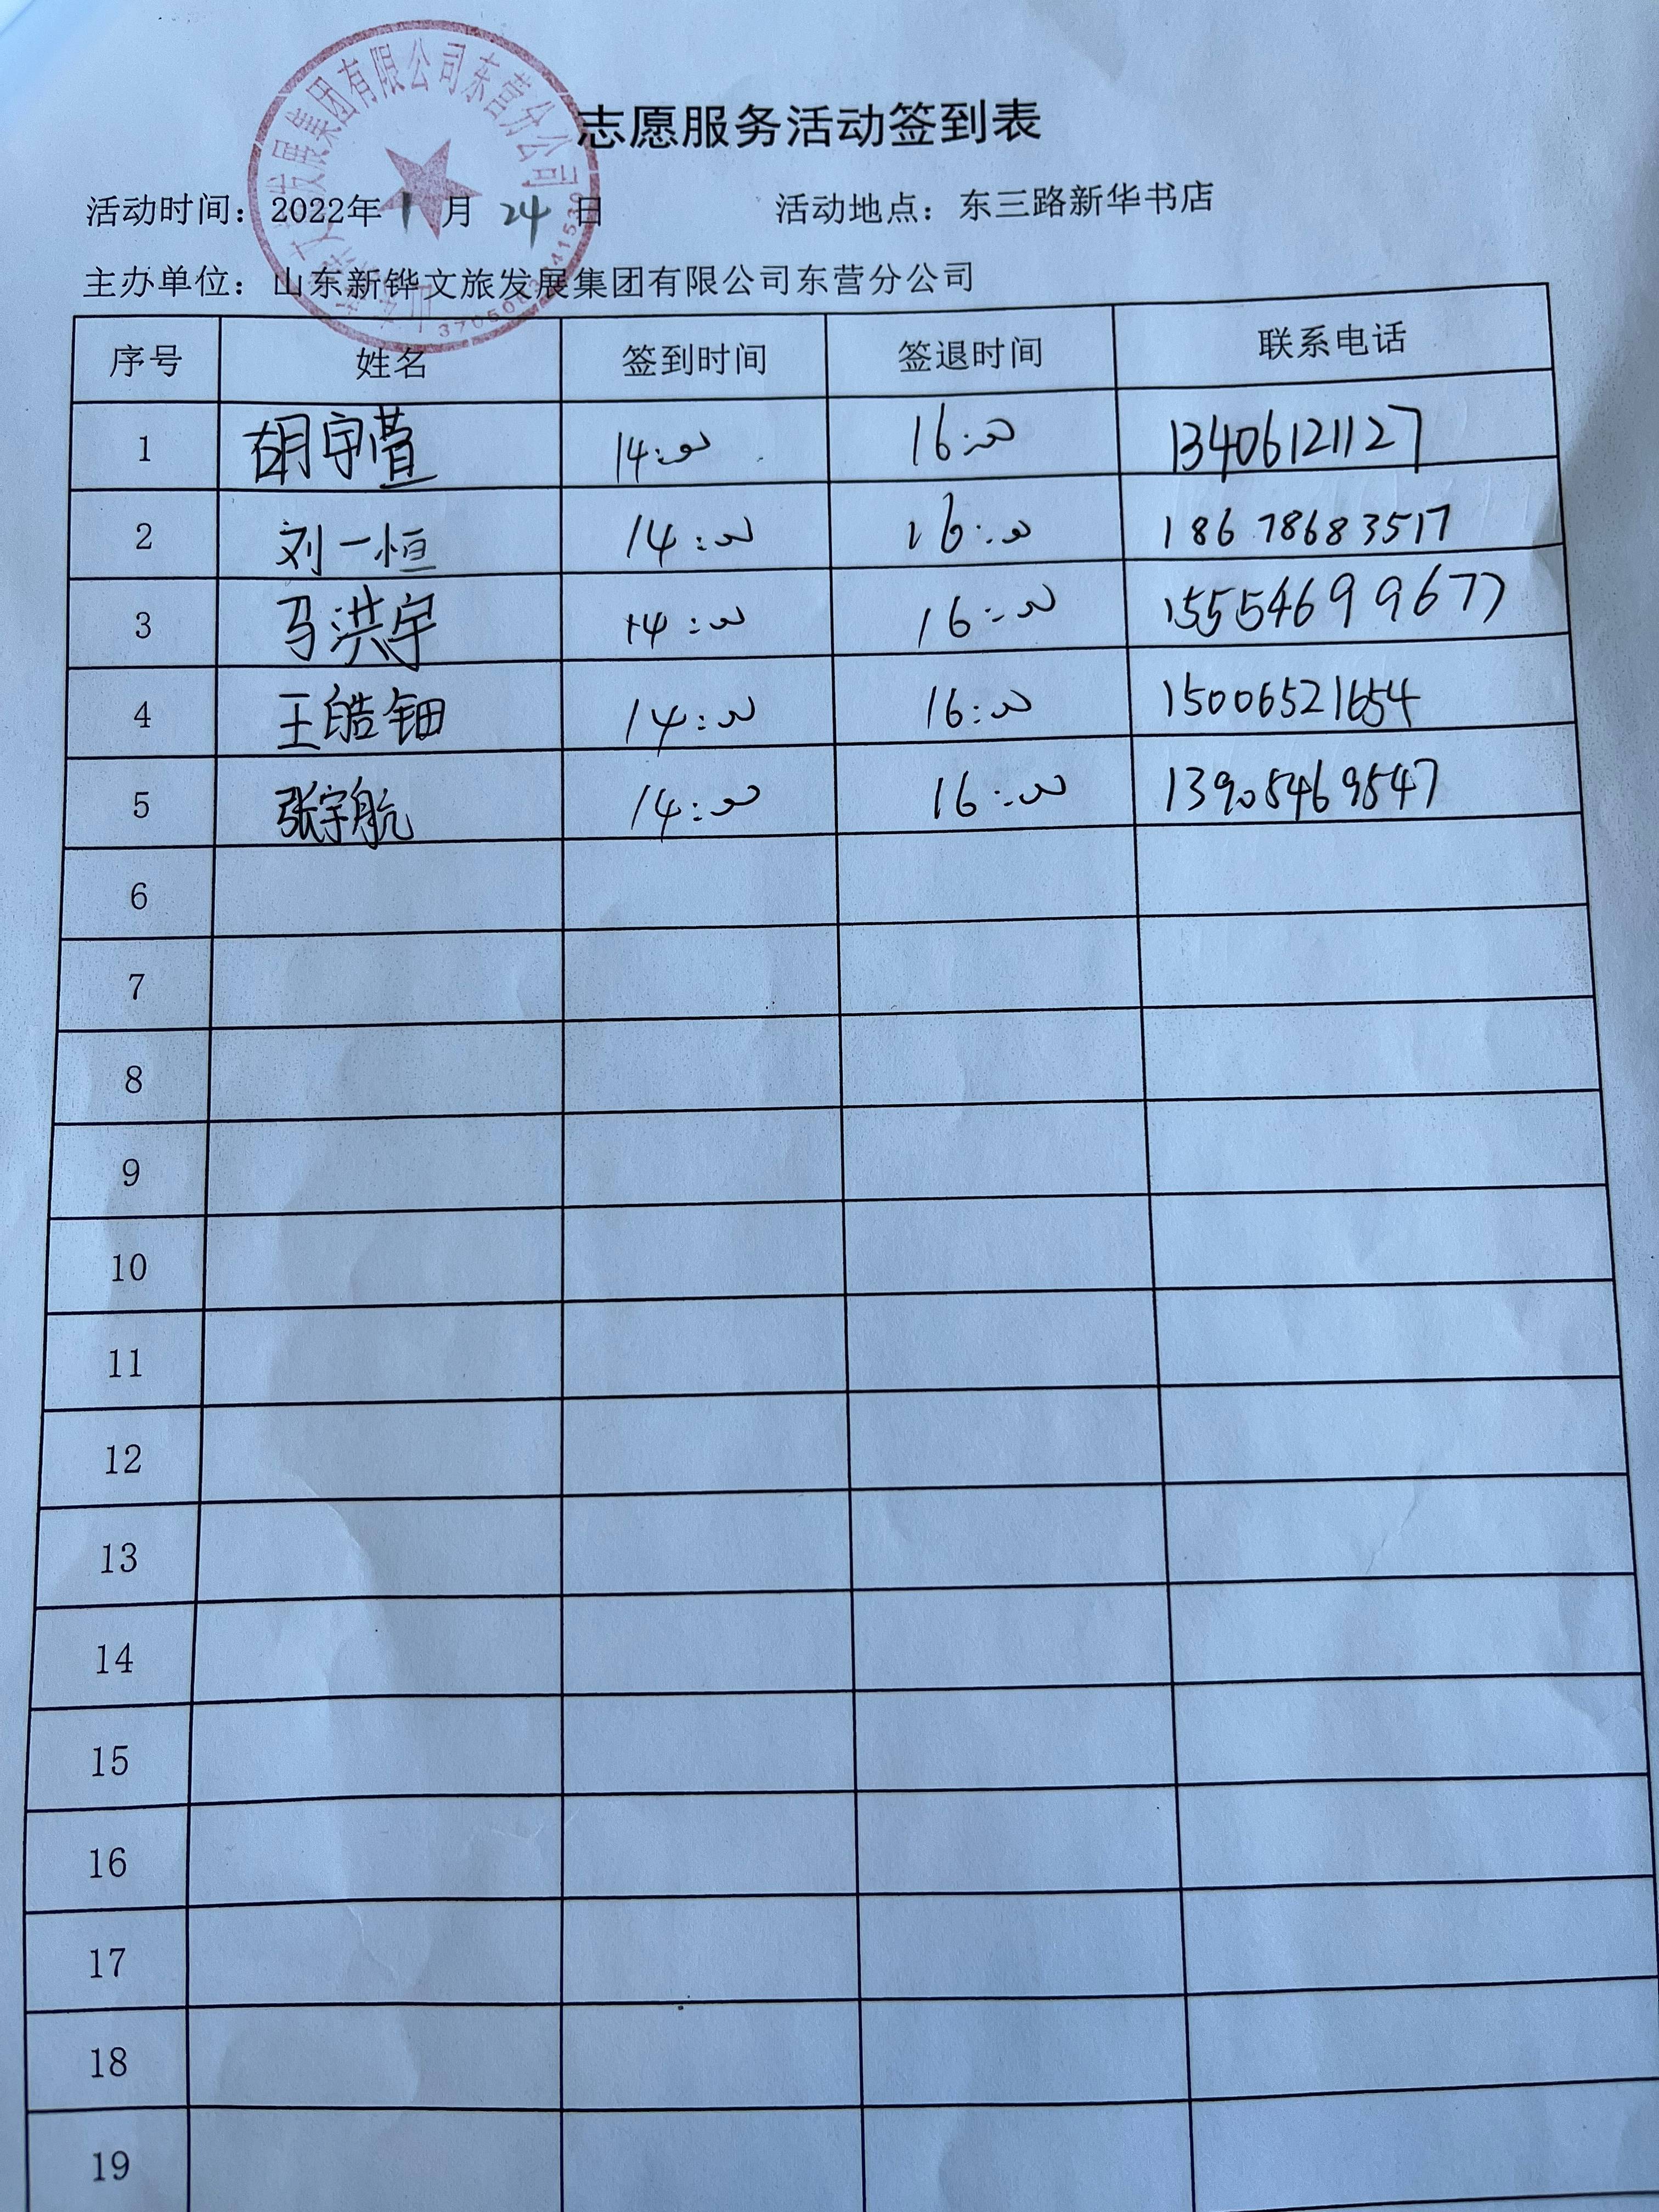 志愿服务活动签到表
活动时间：2022年 1 月 24 日 活动地点：东三路新华书店
主办单位：山东新铧文旅发展集团有限公司东营分公司
发展集团有限公司东营分公司
序号 姓名 签到时间 签退时间 联系电话
1 胡宇萱 14:00 16:00 13406121127
2 刘一恒 14:00 16:00 18678683517
3 马洪宇 14:00 16:00 15554699677
4 王皓钿 14:00 16:00 15006521654
5 张宇航 14:00 16:00 13905469547
6
7
8
9
10
11
12
13
14
15
16
17
18
19